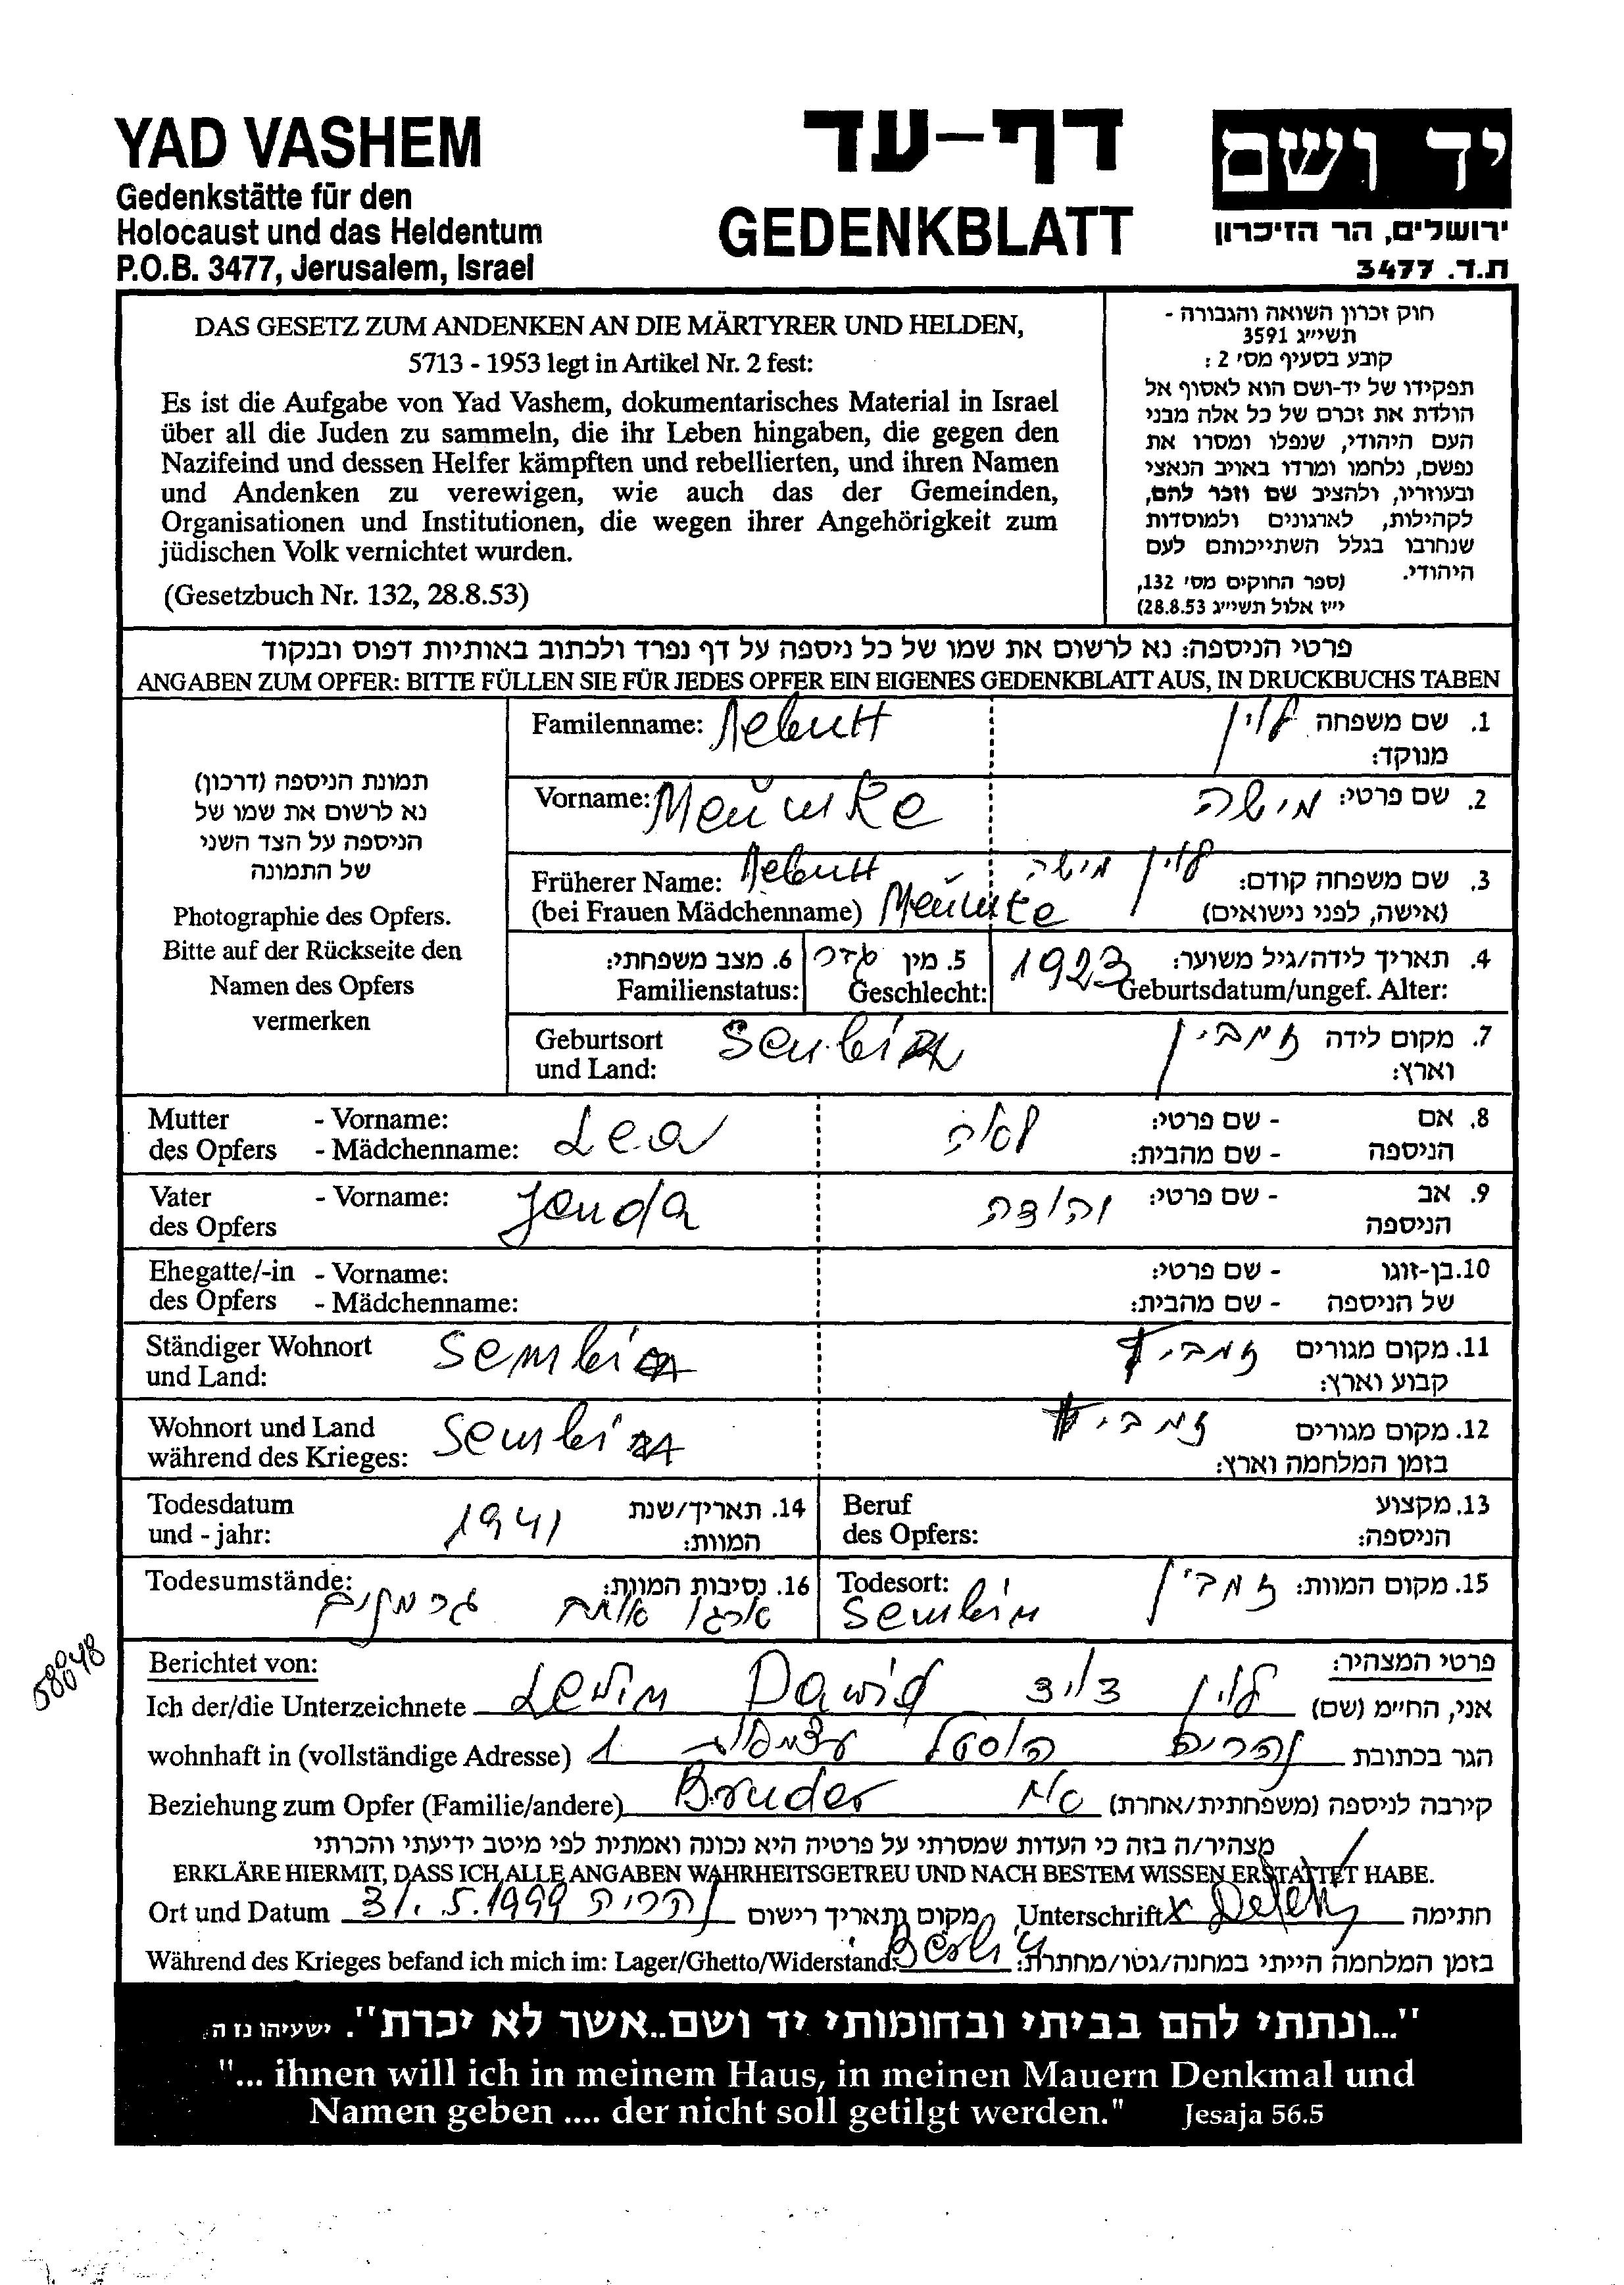 YAD VASHEM
Gedenkstätte für den
Holocaust und das Heldentum
P.O.B. 3477, Jerusalem, Israel
דף-עד
GEDENKBLATT
יד ושם
ירושלים, הר הזיכרון
ת.ד. 3477
DAS GESETZ ZUM ANDENKEN AN DIE MÄRTYRER UND HELDEN,
5713 - 1953 legt in Artikel Nr. 2 fest:
Es ist die Aufgabe von Yad Vashem, dokumentarisches Material in Israel
über all die Juden zu sammeln, die ihr Leben hingaben, die gegen den
Nazifeind und dessen Helfer kämpften und rebellierten, und ihren Namen
und Andenken zu verewigen, wie auch das der Gemeinden,
Organisationen und Institutionen, die wegen ihrer Angehörigkeit zum
jüdischen Volk vernichtet wurden.
(Gesetzbuch Nr. 132, 28.8.53)
חוק זכרון השואה והגבורה -
תשי״ג 3591
קובע בסעיף מס׳ 2 :
תפקידו של יד-ושם הוא לאסוף אל
הולדת את זכרם של כל אלה מבני
העם היהודי, שנפלו ומסרו את
נפשם, נלחמו ומרדו באויב הנאצי
ובעוזריו, ולהציב שם וזכר להם,
לקהילות, לארגונים ולמוסדות
שנחרבו בגלל השתייכותם לעם
היהודי. (ספר החוקים מס׳ 132,
י״ז אלול תשי״ג 28.8.53)
פרטי הניספה: נא לרשום את שמו של כל ניספה על דף נפרד ולכתוב באותיות דפוס ובנקוד
ANGABEN ZUM OPFER: BITTE FÜLLEN SIE FÜR JEDES OPFER EIN EIGENES GEDENKBLATT AUS, IN DRUCKBUCHS TABEN
תמונת הניספה (דרכון)
נא לרשום את שמו של
הניספה על הצד השני
של התמונה
Photographie des Opfers.
Bitte auf der Rückseite den
Namen des Opfers
vermerken
Familenname: 1. שם משפחה לוין
מנוקד:
Vorname: 2. שם פרטי: מישה
Früherer Name: 3. שם משפחה קודם: לוין מישה
(bei Frauen Mädchenname) (אישה, לפני נישואים)
4. תאריך לידה/גיל משוער: 1923 5. מין זכר 6. מצב משפחתי:
Geburtsdatum/ungef. Alter: Geschlecht: Familienstatus:
Geburtsort 7. מקום לידה זמבין
und Land: וארץ:
Mutter - Vorname: Lea 8. אם - שם פרטי: לאה
des Opfers - Mädchenname: הניספה - שם מהבית:
Vater - Vorname: Jeuda 9. אב - שם פרטי: יהודה
des Opfers הניספה
Ehegatte/-in - Vorname: 10. בן-זוגו - שם פרטי:
des Opfers - Mädchenname: של הניספה - שם מהבית:
Ständiger Wohnort 11. מקום מגורים
und Land: קבוע וארץ:
Wohnort und Land 12. מקום מגורים
während des Krieges: בזמן המלחמה וארץ:
Todesdatum 1941 14. תאריך/שנת Beruf 13. מקצוע
und - jahr: המוות: des Opfers: הניספה:
Todesumstände: 16. נסיבות המוות: Todesort: Sembin 15. מקום המוות: זמבין
גרמנים
58048
Berichtet von: פרטי המצהיר:
Ich der/die Unterzeichnete Levin Dawid לוין דויד אני, החיימ (שם)
wohnhaft in (vollständige Adresse) נהריה הוסטל 1 הגר בכתובת
Beziehung zum Opfer (Familie/andere) Bruder אח קירבה לניספה (משפחתית/אחרת)
מצהיר/ה בזה כי העדות שמסרתי על פרטיה היא נכונה ואמתית לפי מיטב ידיעתי והכרתי
ERKLÄRE HIERMIT, DASS ICH ALLE ANGABEN WAHRHEITSGETREU UND NACH BESTEM WISSEN ERSTATTET HABE.
Ort und Datum 31.5.1999 נהריה מקום ותאריך רישום Unterschrift חתימה
Während des Krieges befand ich mich im: Lager/Ghetto/Widerstand: בזמן המלחמה הייתי במחנה/גטו/מחתרת:
"...ונתתי להם בביתי ובחומותי יד ושם..אשר לא יכרת". ישעיהו נז ה.
"... ihnen will ich in meinem Haus, in meinen Mauern Denkmal und
Namen geben .... der nicht soll getilgt werden." Jesaja 56.5